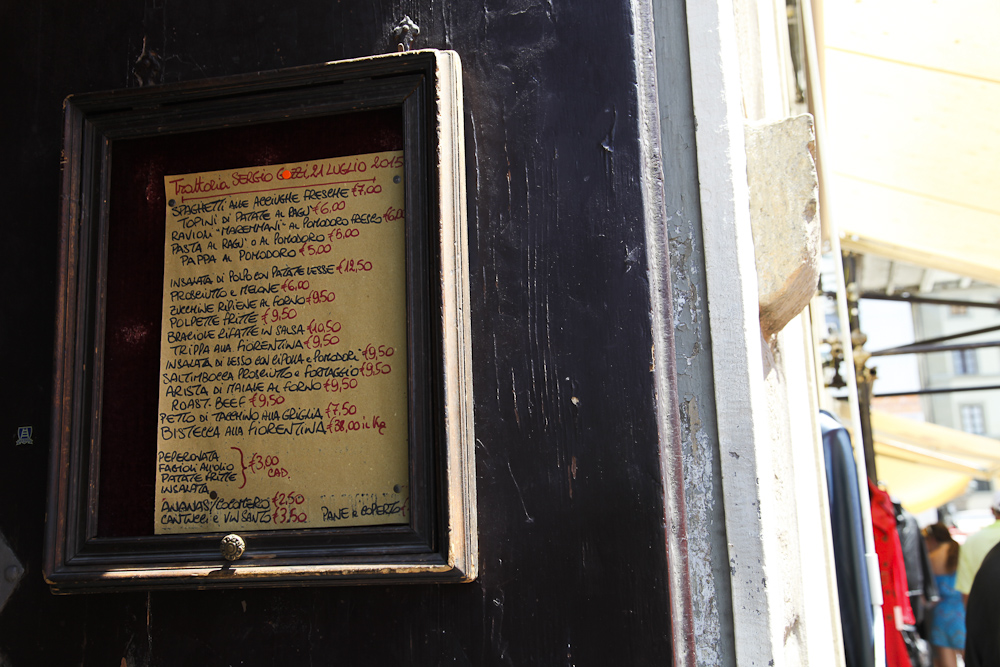 Trattoria SERGIO GOZZI 21 LUGLIO 2015
SPAGHETTI ALLE ACCIUGHE FRESCHE €7,00
TOPINI DI PATATE AL RAGU' €6,00
RAVIOLI "MAREMMANI" AL POMODORO FRESCO €6,00
PASTA AL RAGU' O AL POMODORO €5,00
PAPPA AL POMODORO €5,00
INSALATA DI POLPO CON PATATE LESSE €12,50
PROSCIUTTO e MELONE €6,00
ZUCCHINE RIPIENE AL FORNO €9,50
POLPETTE FRITTE €9,50
BRACIOLE RIFATTE IN SALSA €10,50
TRIPPA ALLA FIORENTINA €9,50
INSALATA DI LESSO CON CIPOLLA e POMODORI €9,50
SALTIMBOCCA PROSCIUTTO e FORMAGGIO €9,50
ARISTA DI MAIALE AL FORNO €9,50
ROAST-BEEF €9,50
PETTO DI TACCHINO ALLA GRIGLIA €7,50
BISTECCA ALLA FIORENTINA €38,00 il Kg
PEPERONATA
FAGIOLI ALL'OLIO
PATATE FRITTE
INSALATA
€3,00
CAD.
ANANAS/COCOMERO €2,50
CANTUCCI e VIN SANTO €3,50
PANE e COPERTO